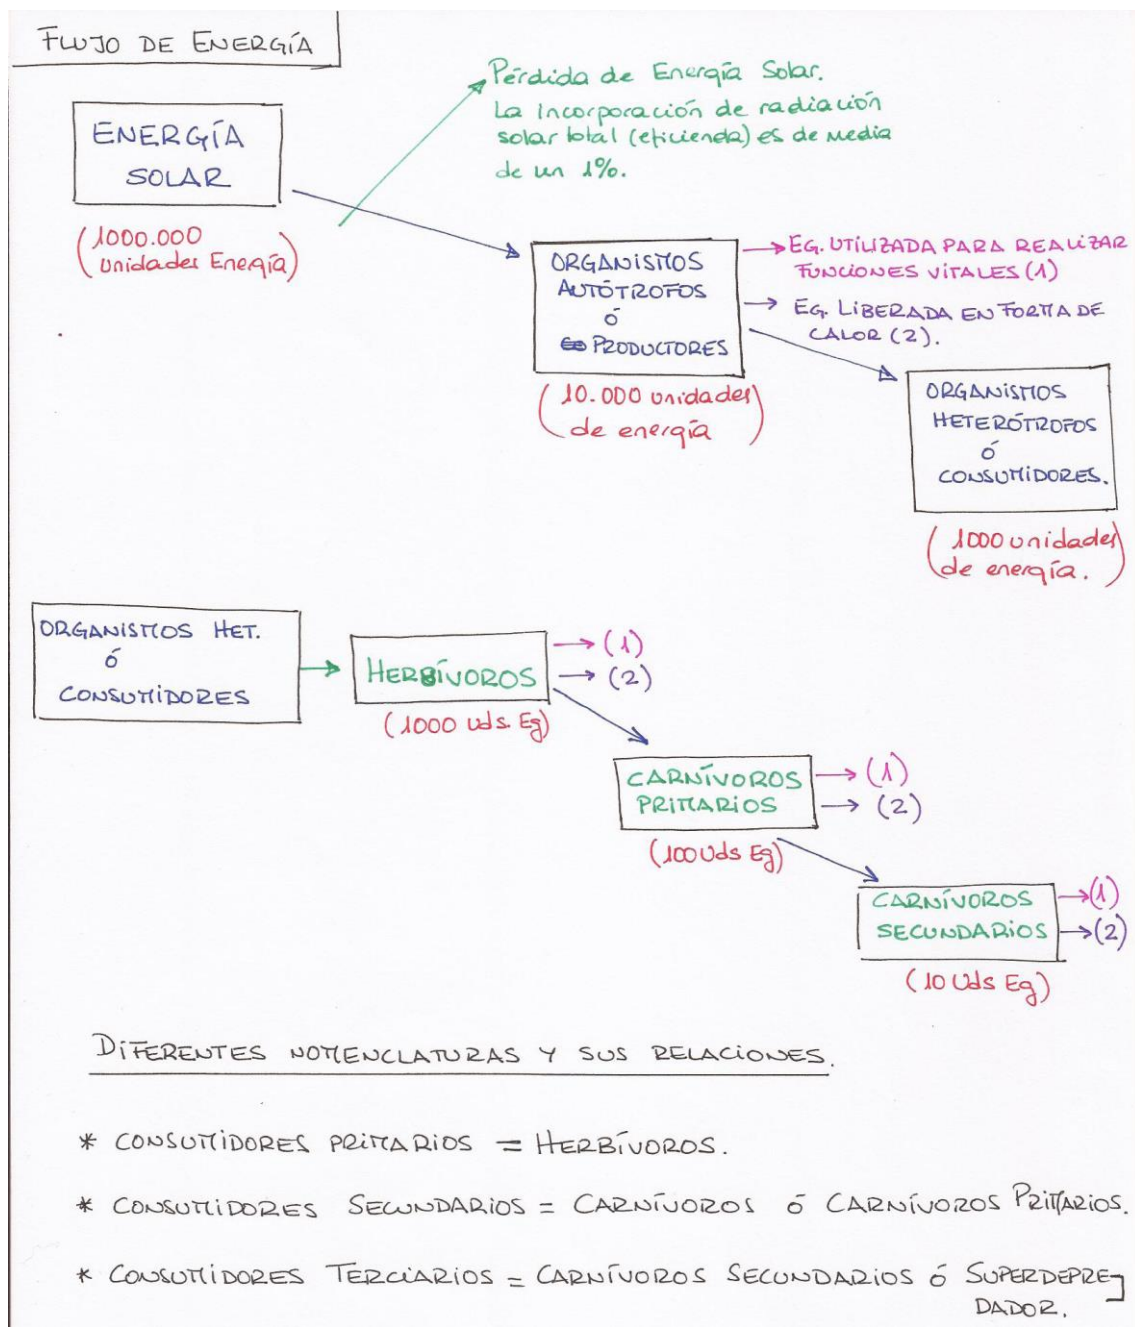 FLUJO DE ENERGÍA
ENERGÍA
SOLAR
(1000.000
unidades Energía)
Pérdida de Energía Solar.
La incorporación de radiación
solar total (eficiencia) es de media
de un 1%.
ORGANISMOS
AUTÓTROFOS
ó
PRODUCTORES
(10.000 unidades
de energía)
→ EG. UTILIZADA PARA REALIZAR
FUNCIONES VITALES (1)
→ EG. LIBERADA EN FORMA DE
CALOR (2).
ORGANISMOS
HETERÓTROFOS
ó
CONSUMIDORES.
(1000 unidades
de energía.)
ORGANISMOS HET.
ó
CONSUMIDORES
HERBÍVOROS
(1000 Uds. Eg)
→ (1)
→ (2)
CARNÍVOROS
PRIMARIOS
(100 Uds Eg)
→ (1)
→ (2)
CARNÍVOROS
SECUNDARIOS
(10 Uds Eg)
→ (1)
→ (2)
DIFERENTES NOMENCLATURAS Y SUS RELACIONES.
* CONSUMIDORES PRIMARIOS = HERBÍVOROS.
* CONSUMIDORES SECUNDARIOS = CARNÍVOROS ó CARNÍVOROS PRIMARIOS.
* CONSUMIDORES TERCIARIOS = CARNÍVOROS SECUNDARIOS ó SUPERDEPRE-
DADOR.